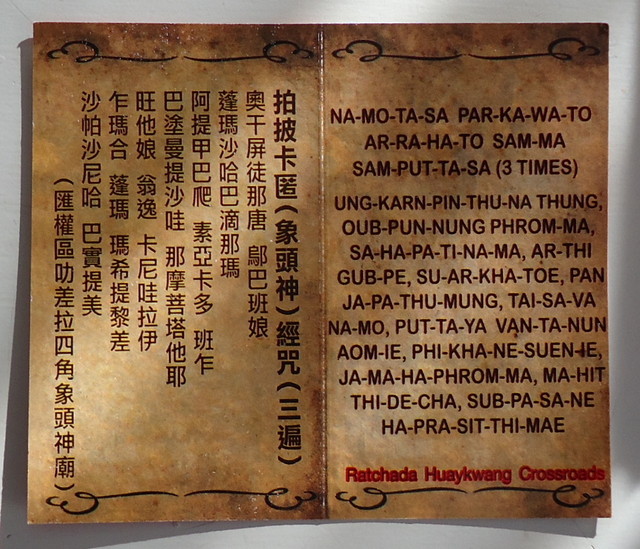 拍披卡匿(象頭神)經咒(三遍)
奧干屏徒那唐 鄔巴班娘
蓬瑪沙哈巴滴那瑪
阿提甲巴爬 素亞卡多 班乍
巴塗曼提沙哇 那摩菩塔他耶
旺他娘 翁逸 卡尼哇拉伊
乍瑪合 蓬瑪 瑪希提黎差
沙帕沙尼哈 巴實提美
(匯權區叻差拉四角象頭神廟)
NA-MO-TA-SA PAR-KA-WA-TO
AR-RA-HA-TO SAM-MA
SAM-PUT-TA-SA (3 TIMES)
UNG-KARN-PIN-THU-NA THUNG,
OUB-PUN-NUNG PHROM-MA,
SA-HA-PA-TI-NA-MA, AR-THI
GUB-PE, SU-AR-KHA-TOE, PAN
JA-PA-THU-MUNG, TAI-SA-VA
NA-MO, PUT-TA-YA VAN-TA-NUN
AOM-IE, PHI-KHA-NE-SUEN-IE,
JA-MA-HA-PHROM-MA, MA-HIT
THI-DE-CHA, SUB-PA-SA-NE
HA-PRA-SIT-THI-MAE
Ratchada Huaykwang Crossroads